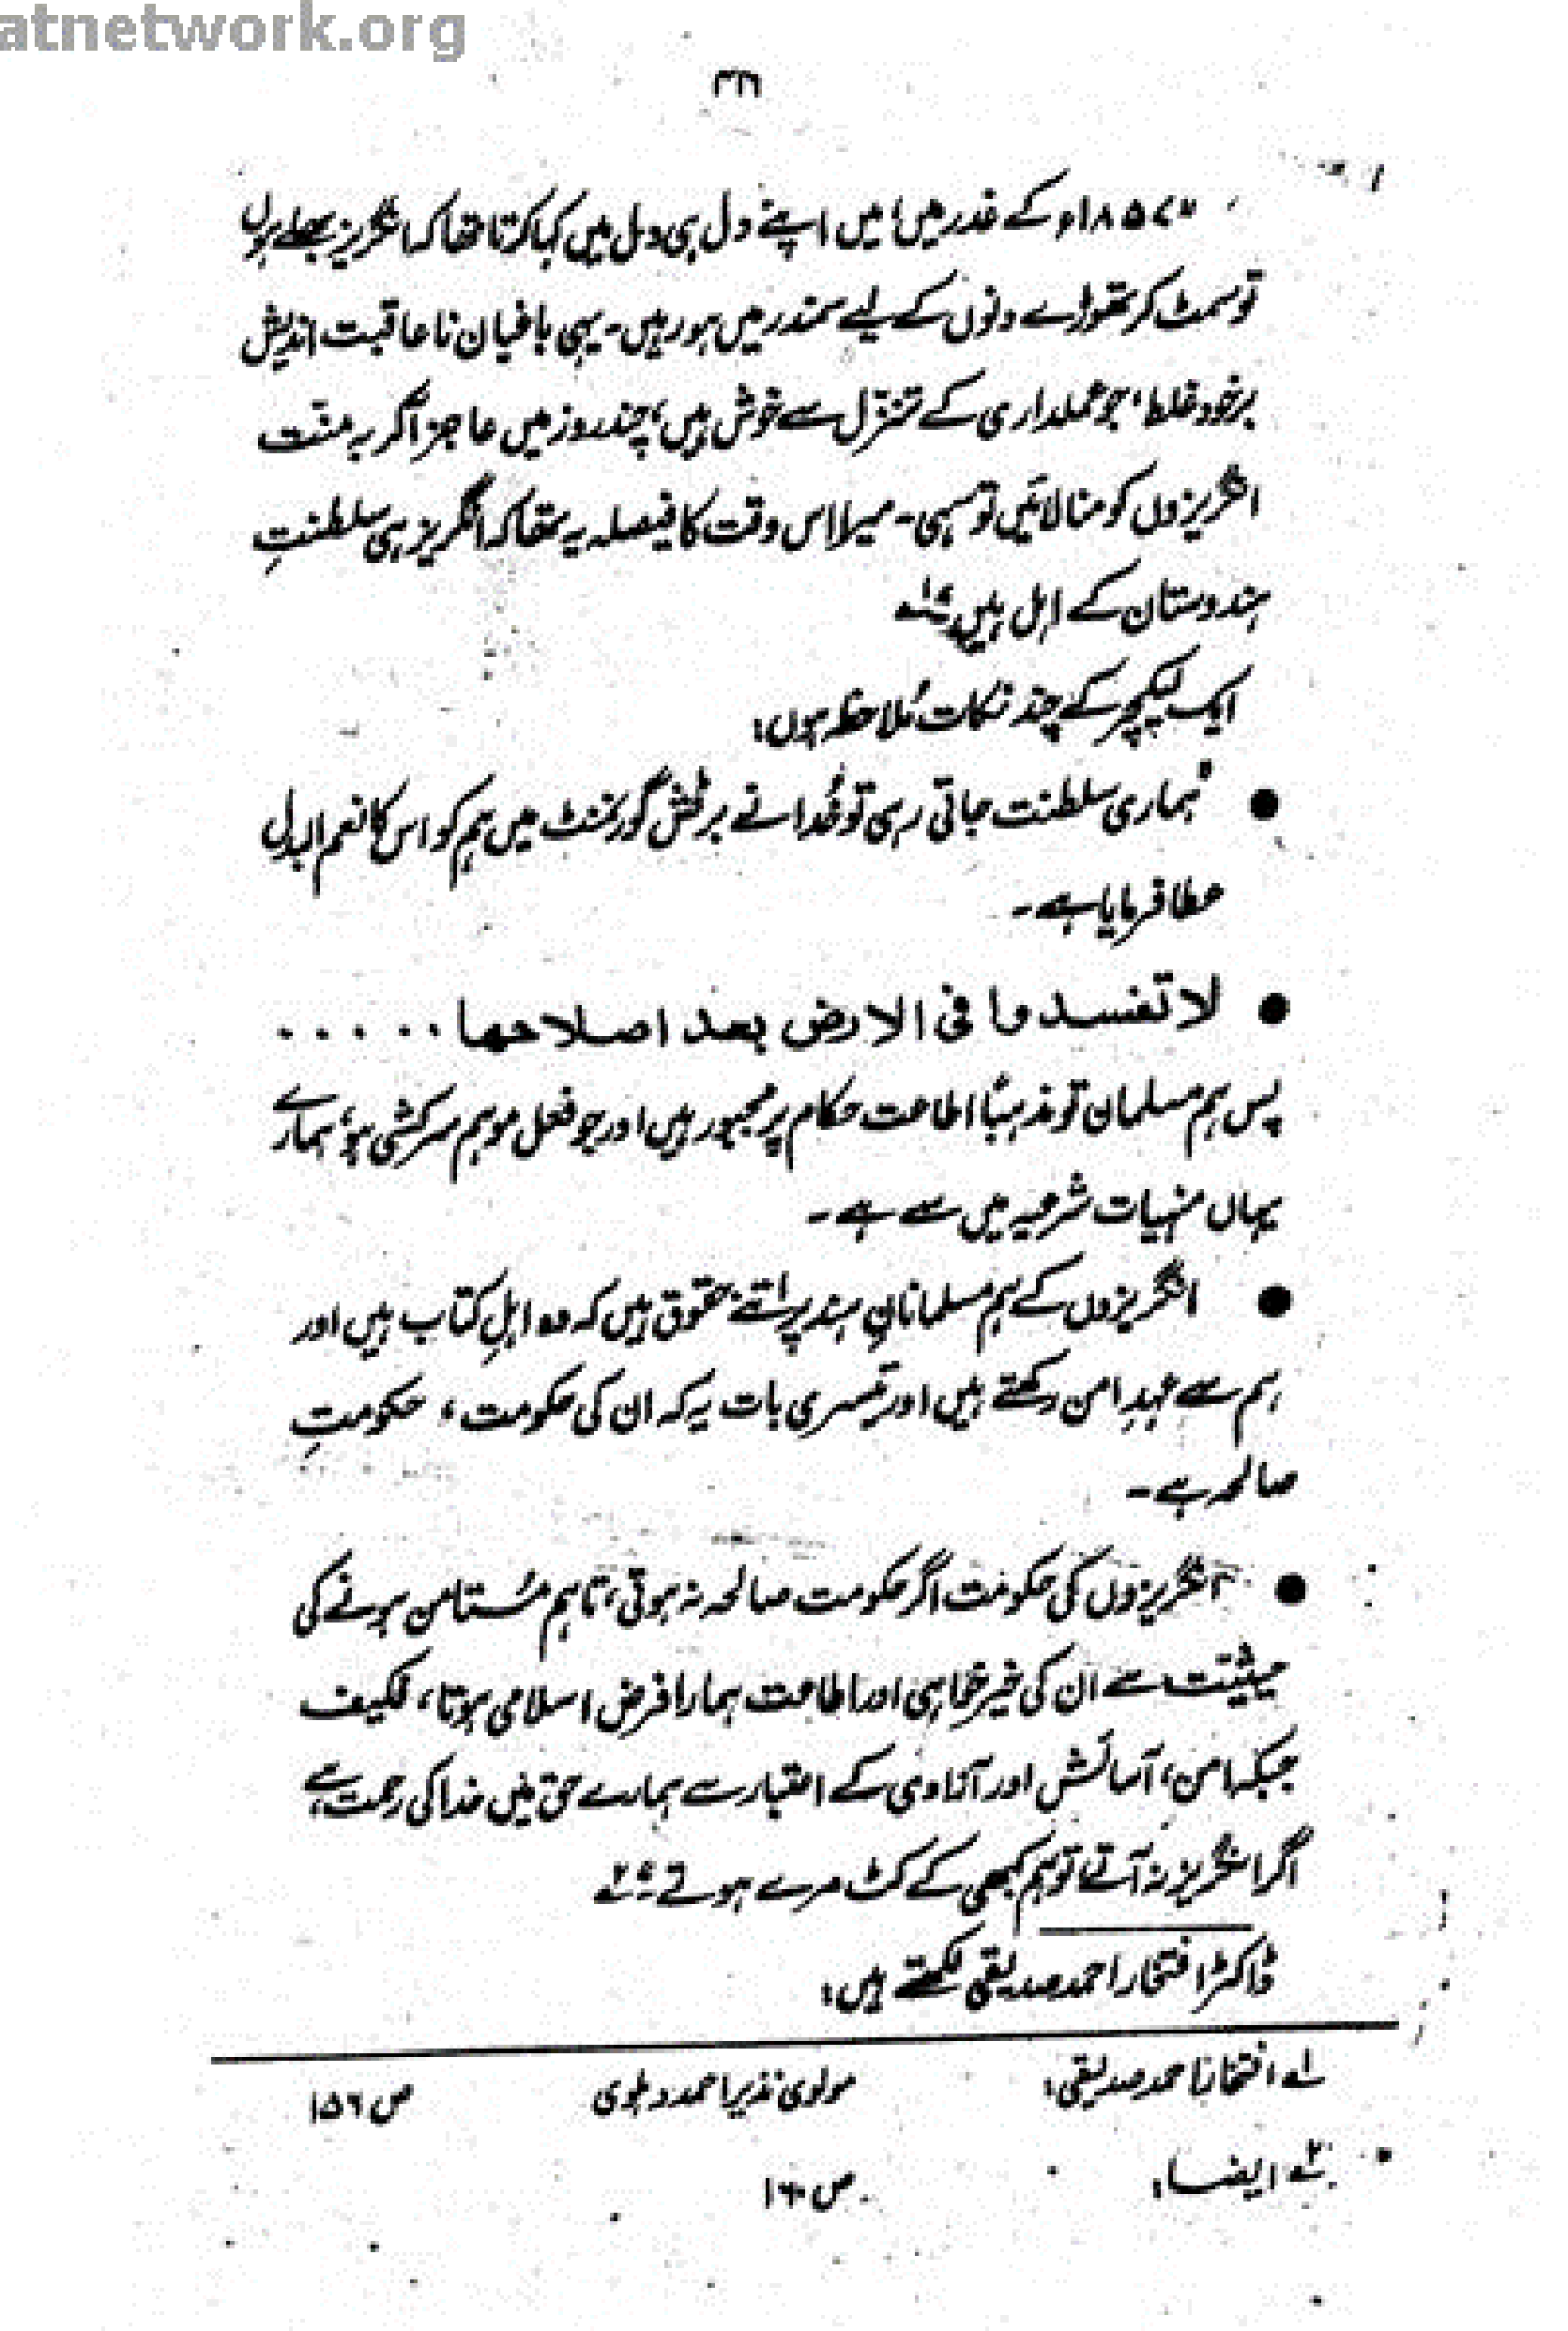 atnetwork.org
"۱۸۵۷ء کے غدر میں، میں اپنے دل ہی دل میں کہا کرتا تھا کہ انگریز بھلے ہوں
تو سمٹ کر تھوڑے دنوں کے لیے سمندر میں ہو رہیں۔ یہی باغیان ناعاقبت اندیش
برخود غلط، جو عملداری کے تنزّل سے خوش ہیں، چند روز میں عاجز آ کر بہ منّت
انگریزوں کو منا لائیں تو سہی۔ میرا اس وقت کا فیصلہ یہ تھا کہ انگریز ہی سلطنتِ
ہندوستان کے اہل ہیں۔" ۱ے
ایک لیکچر کے چند نکات مُلاحظہ ہوں:
● "ہماری سلطنت جاتی رہی تو خُدا نے برٹش گورنمنٹ میں ہم کو اس کا نعم البدل
عطا فرمایا ہے۔
● لا تفسدوا فی الارض بعد اصلاحها ۰۰۰۰۰
پس ہم مسلمان تو مذہباً اطاعت حکام پر مجبور ہیں اور جو فعل موہم سرکشی ہو، ہمارے
یہاں منہیات شرعیہ میں سے ہے۔
● انگریزوں کے ہم مسلمانانِ ہند پر اتنے حقوق ہیں کہ وہ اہلِ کتاب ہیں اور
ہم سے عہدِ امن رکھتے ہیں اور تیسری بات یہ کہ ان کی حکومت، حکومتِ
صالحہ ہے۔
● انگریزوں کی حکومت اگر حکومت صالحہ نہ ہوتی، تاہم مُستامن ہونے کی
حیثیّت سے ان کی خیرخواہی اور اطاعت ہمارا فرض اسلامی ہوتا، فکیف
جبکہ امن، آسائش اور آزادی کے اعتبار سے ہمارے حق میں خدا کی رحمت ہے
اگر انگریز نہ آتے تو ہم کبھی کے کٹ مرے ہوتے۔" ۲ے
ڈاکٹر افتخار احمد صدیقی لکھتے ہیں:
۱ے افتخار احمد صدیقی: مولوی نذیر احمد دہلوی ص ۱۵۶
۲ے ایضاً: ص ۱۶۰